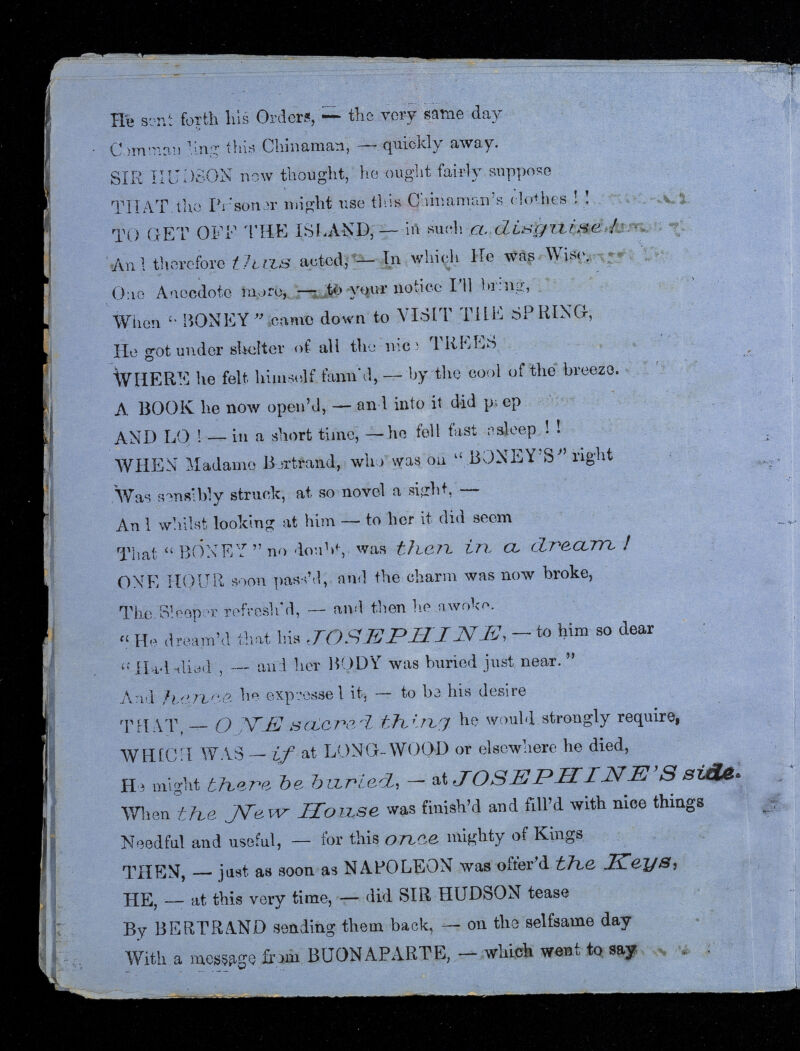 He sent forth his Orders, — the very same day
Commanding this Chinaman, — quickly away.
SIR HUDSON now thought, he ought fairly suppose
THAT the Prisoner might use this Chinaman's clothes ! !
TO GET OFF THE ISLAND, — in such a disguise
And therefore thus acted, — In which He was Wise.
One Anecdote more, — to your notice I'll bring,
When “ BONEY ” came down to VISIT THE SPRING,
He got under shelter of all the nice TREES
WHERE he felt himself fann'd, — by the cool of the breeze.
A BOOK he now open'd, — and into it did peep
AND LO ! — in a short time, — he fell fast asleep ! !
WHEN Madame Bertrand, who was on “ BONEY'S ” right
Was sensibly struck, at so novel a sight, —
And whilst looking at him — to her it did seem
That “ BONEY ” no doubt, was then in a dream !
ONE HOUR soon pass'd, and the charm was now broke,
The Sleeper refresh'd, — and then he awoke.
“ He dream'd that his JOSEPHINE, — to him so dear
“ Had died , — and her BODY was buried just near. ”
And hence he expressel it, — to be his desire
THAT, — ONE sacred thing he would strongly require,
WHICH WAS — if at LONG-WOOD or elsewhere he died,
He might there be buried, — at JOSEPHINE'S side.
When the New House was finish'd and fill'd with nice things
Needful and useful, — for this once mighty of Kings
THEN, — just as soon as NAPOLEON was offer'd the Keys,
HE, — at this very time, — did SIR HUDSON tease
By BERTRAND sending them back, — on the selfsame day
With a message from BUONAPARTE, — which went to say